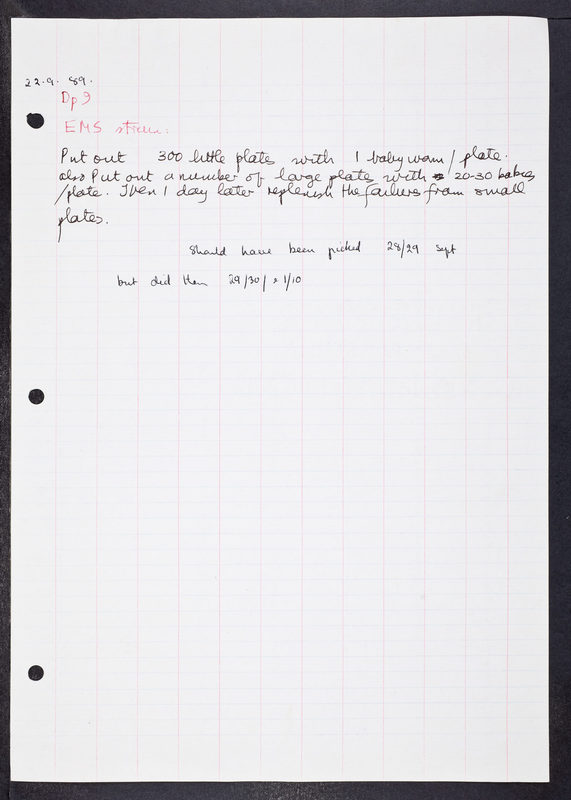 22.9.89.
Dp9
EMS
Put out 300 little plates with 1 baby worm/plate.
also Put out a number of large plates with 20-30 babies
/plate. Then 1 day later replenish the failures from small
plates.
Should have been picked 28/29 Sept
but did then 29/30/ & 1/10